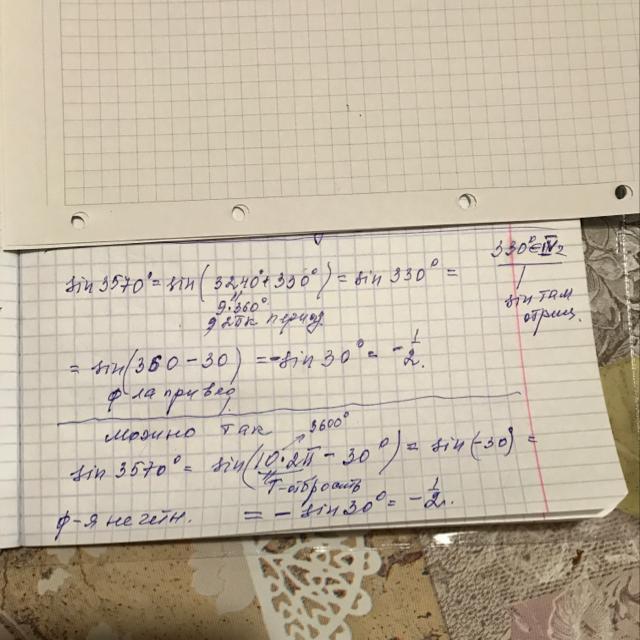 330° ∈ IV г
sin 3570° = sin(3240° + 330°) = sin 330° =
9·360°
sin там
отриц.
9 2πк период.
= sin(360 - 30) = -sin 30° = -1/2.
ф-ла привед.
можно так
3600°
sin 3570° = sin(10·2π - 30°) = sin(-30°) =
T-отбросить
ф-я нечётн. = - sin 30° = -1/2.